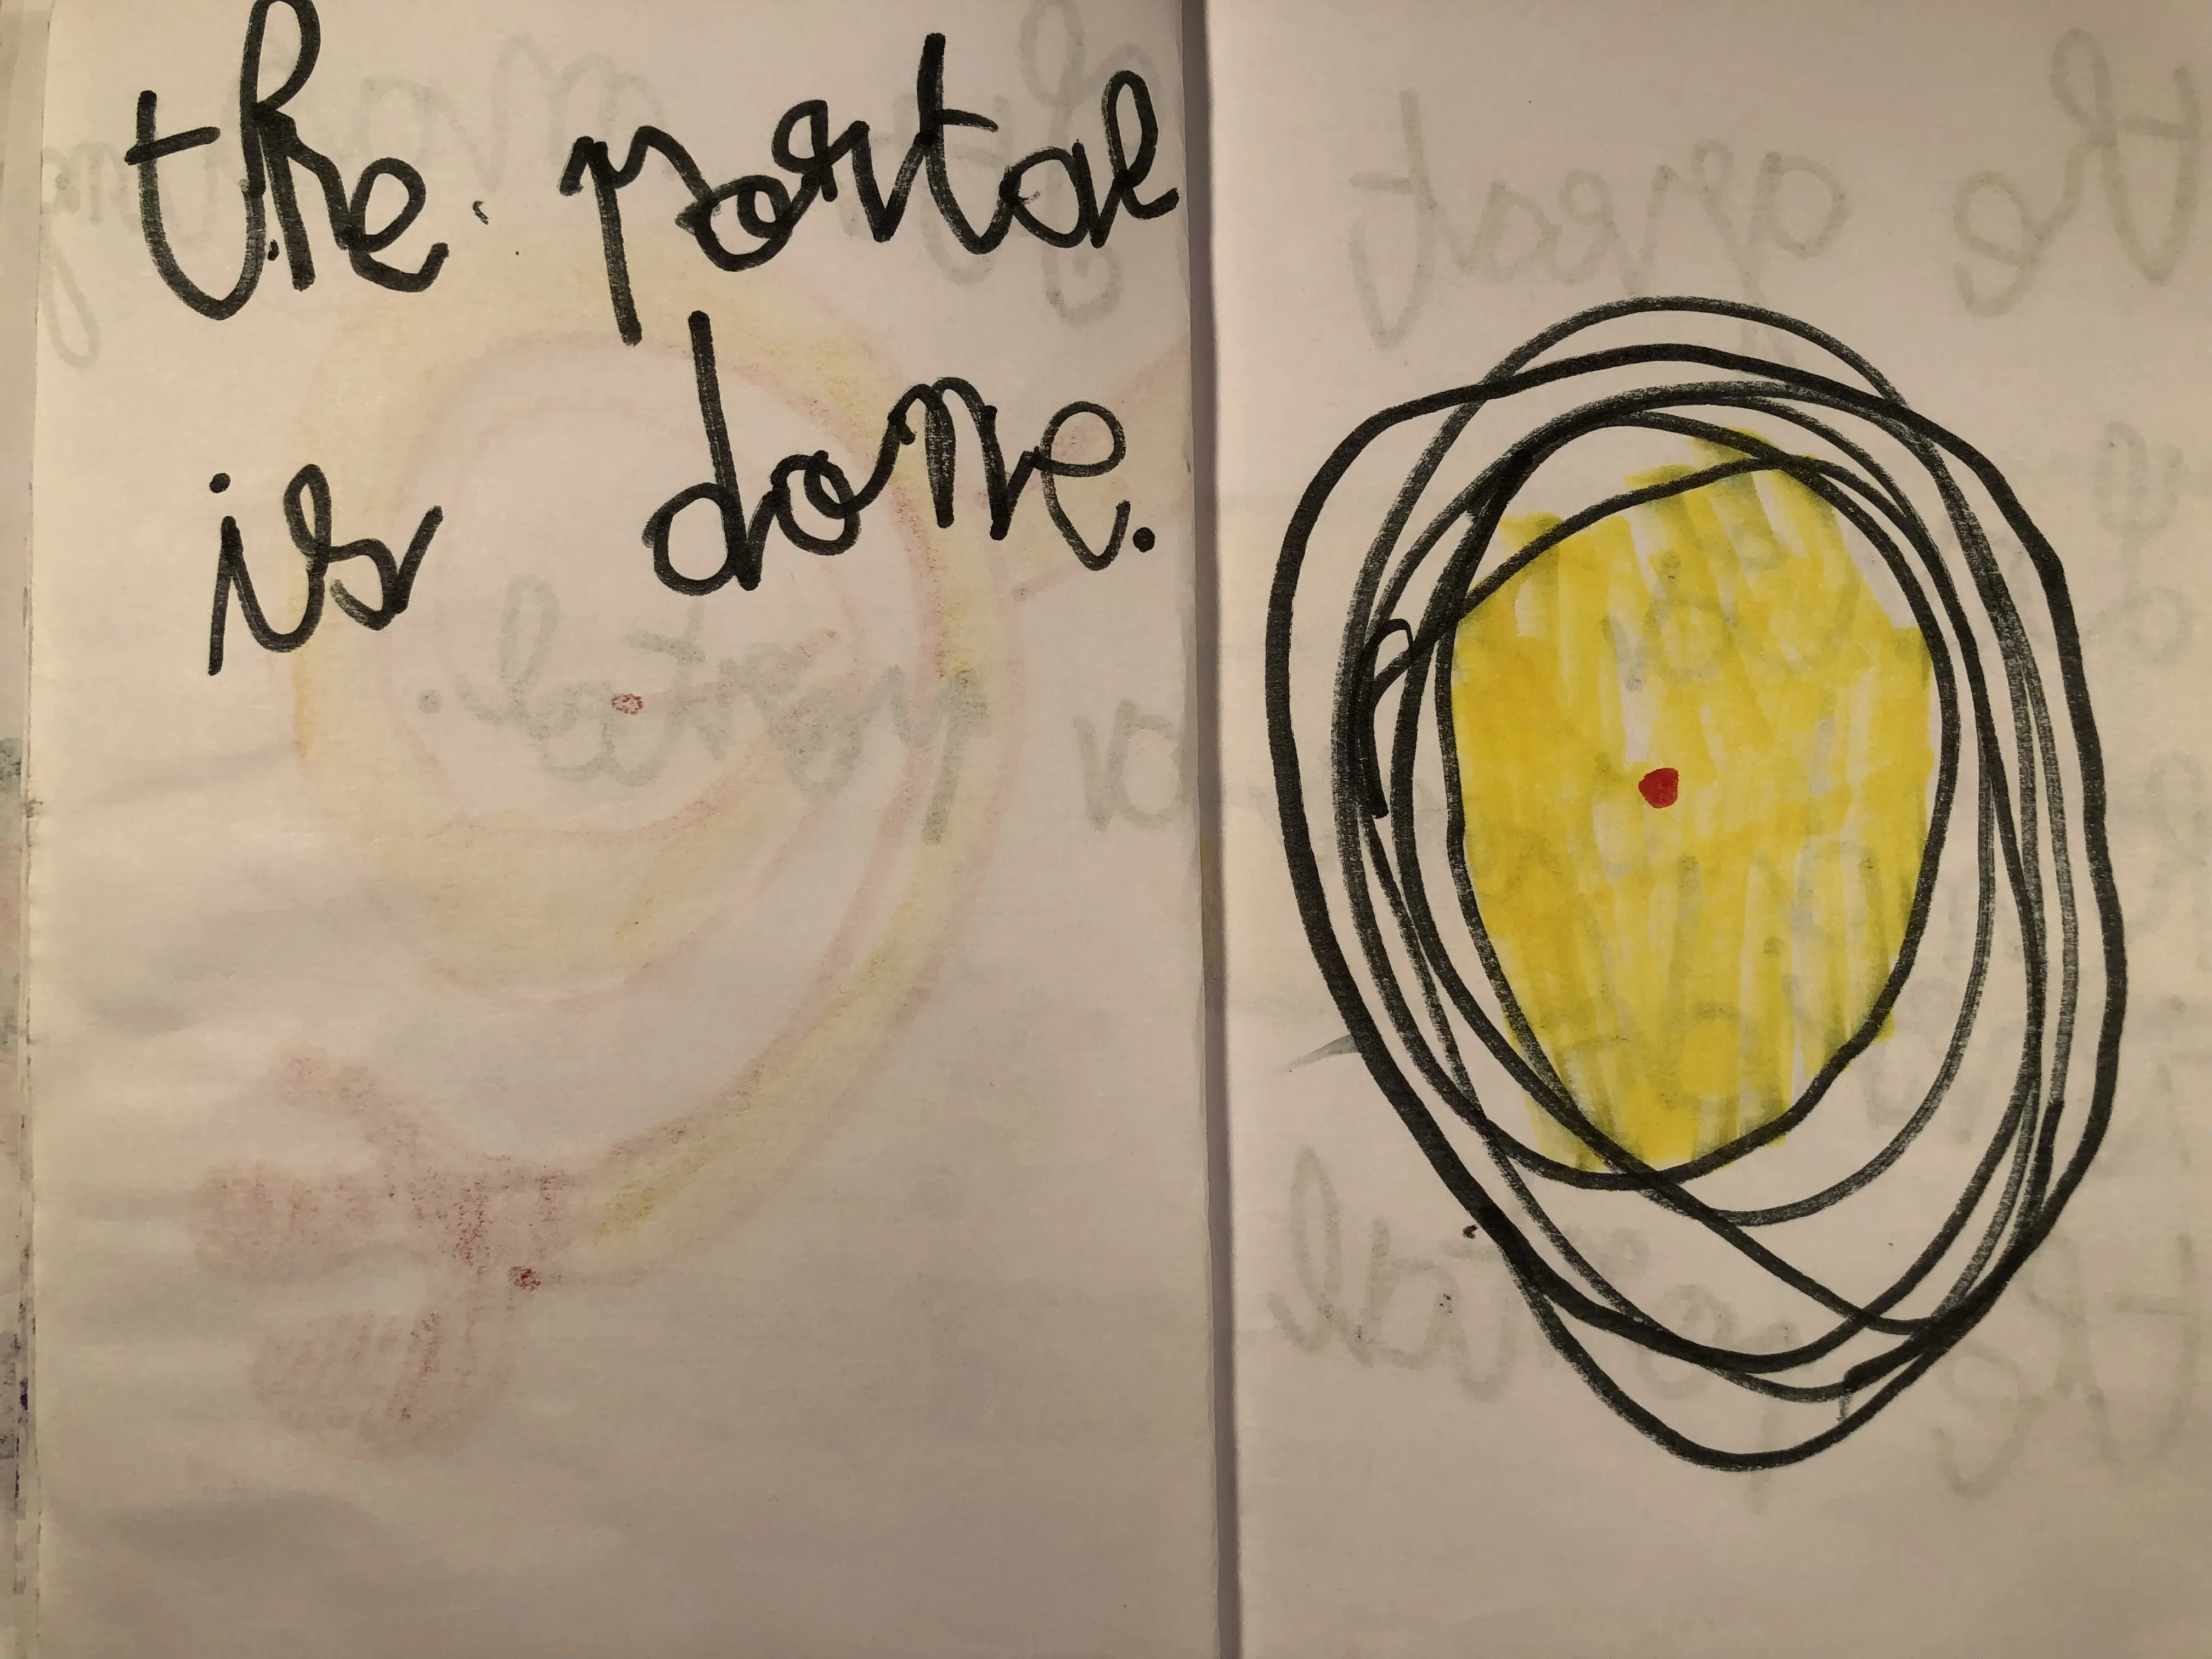 the portal
is done.